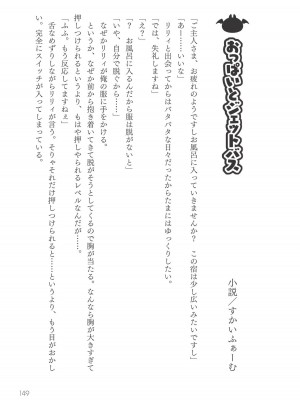 おっぱいとジェットバス
小説／すかいふぁーむ
「ご主人さま、お疲れのようですしお風呂に入っていきませんか？　この宿は少し広いみたいですし」
「あー……いいな」
リリィと出会ってからはバタバタな日々だったからたまにはゆっくりしたい。
「では、失礼しますね」
「え？」
「？　お風呂に入るんだから服は脱がないと」
「いや、自分で脱ぐから……」
なぜかリリィが俺の服に手をかける。
というか、なぜか前から抱き着いてきて脱がそうとしてくるので胸が当たる。なんなら胸が大きすぎて
押しつけられるというより、もはや押しやられるレベルなんだが……。
「ふふ。もう反応してますねぇ」
舌なめずりしながらリリィが言う。そりゃそれだけ押しつけられると……というより、もう目がおかし
い。完全にスイッチが入ってしまっている。
149